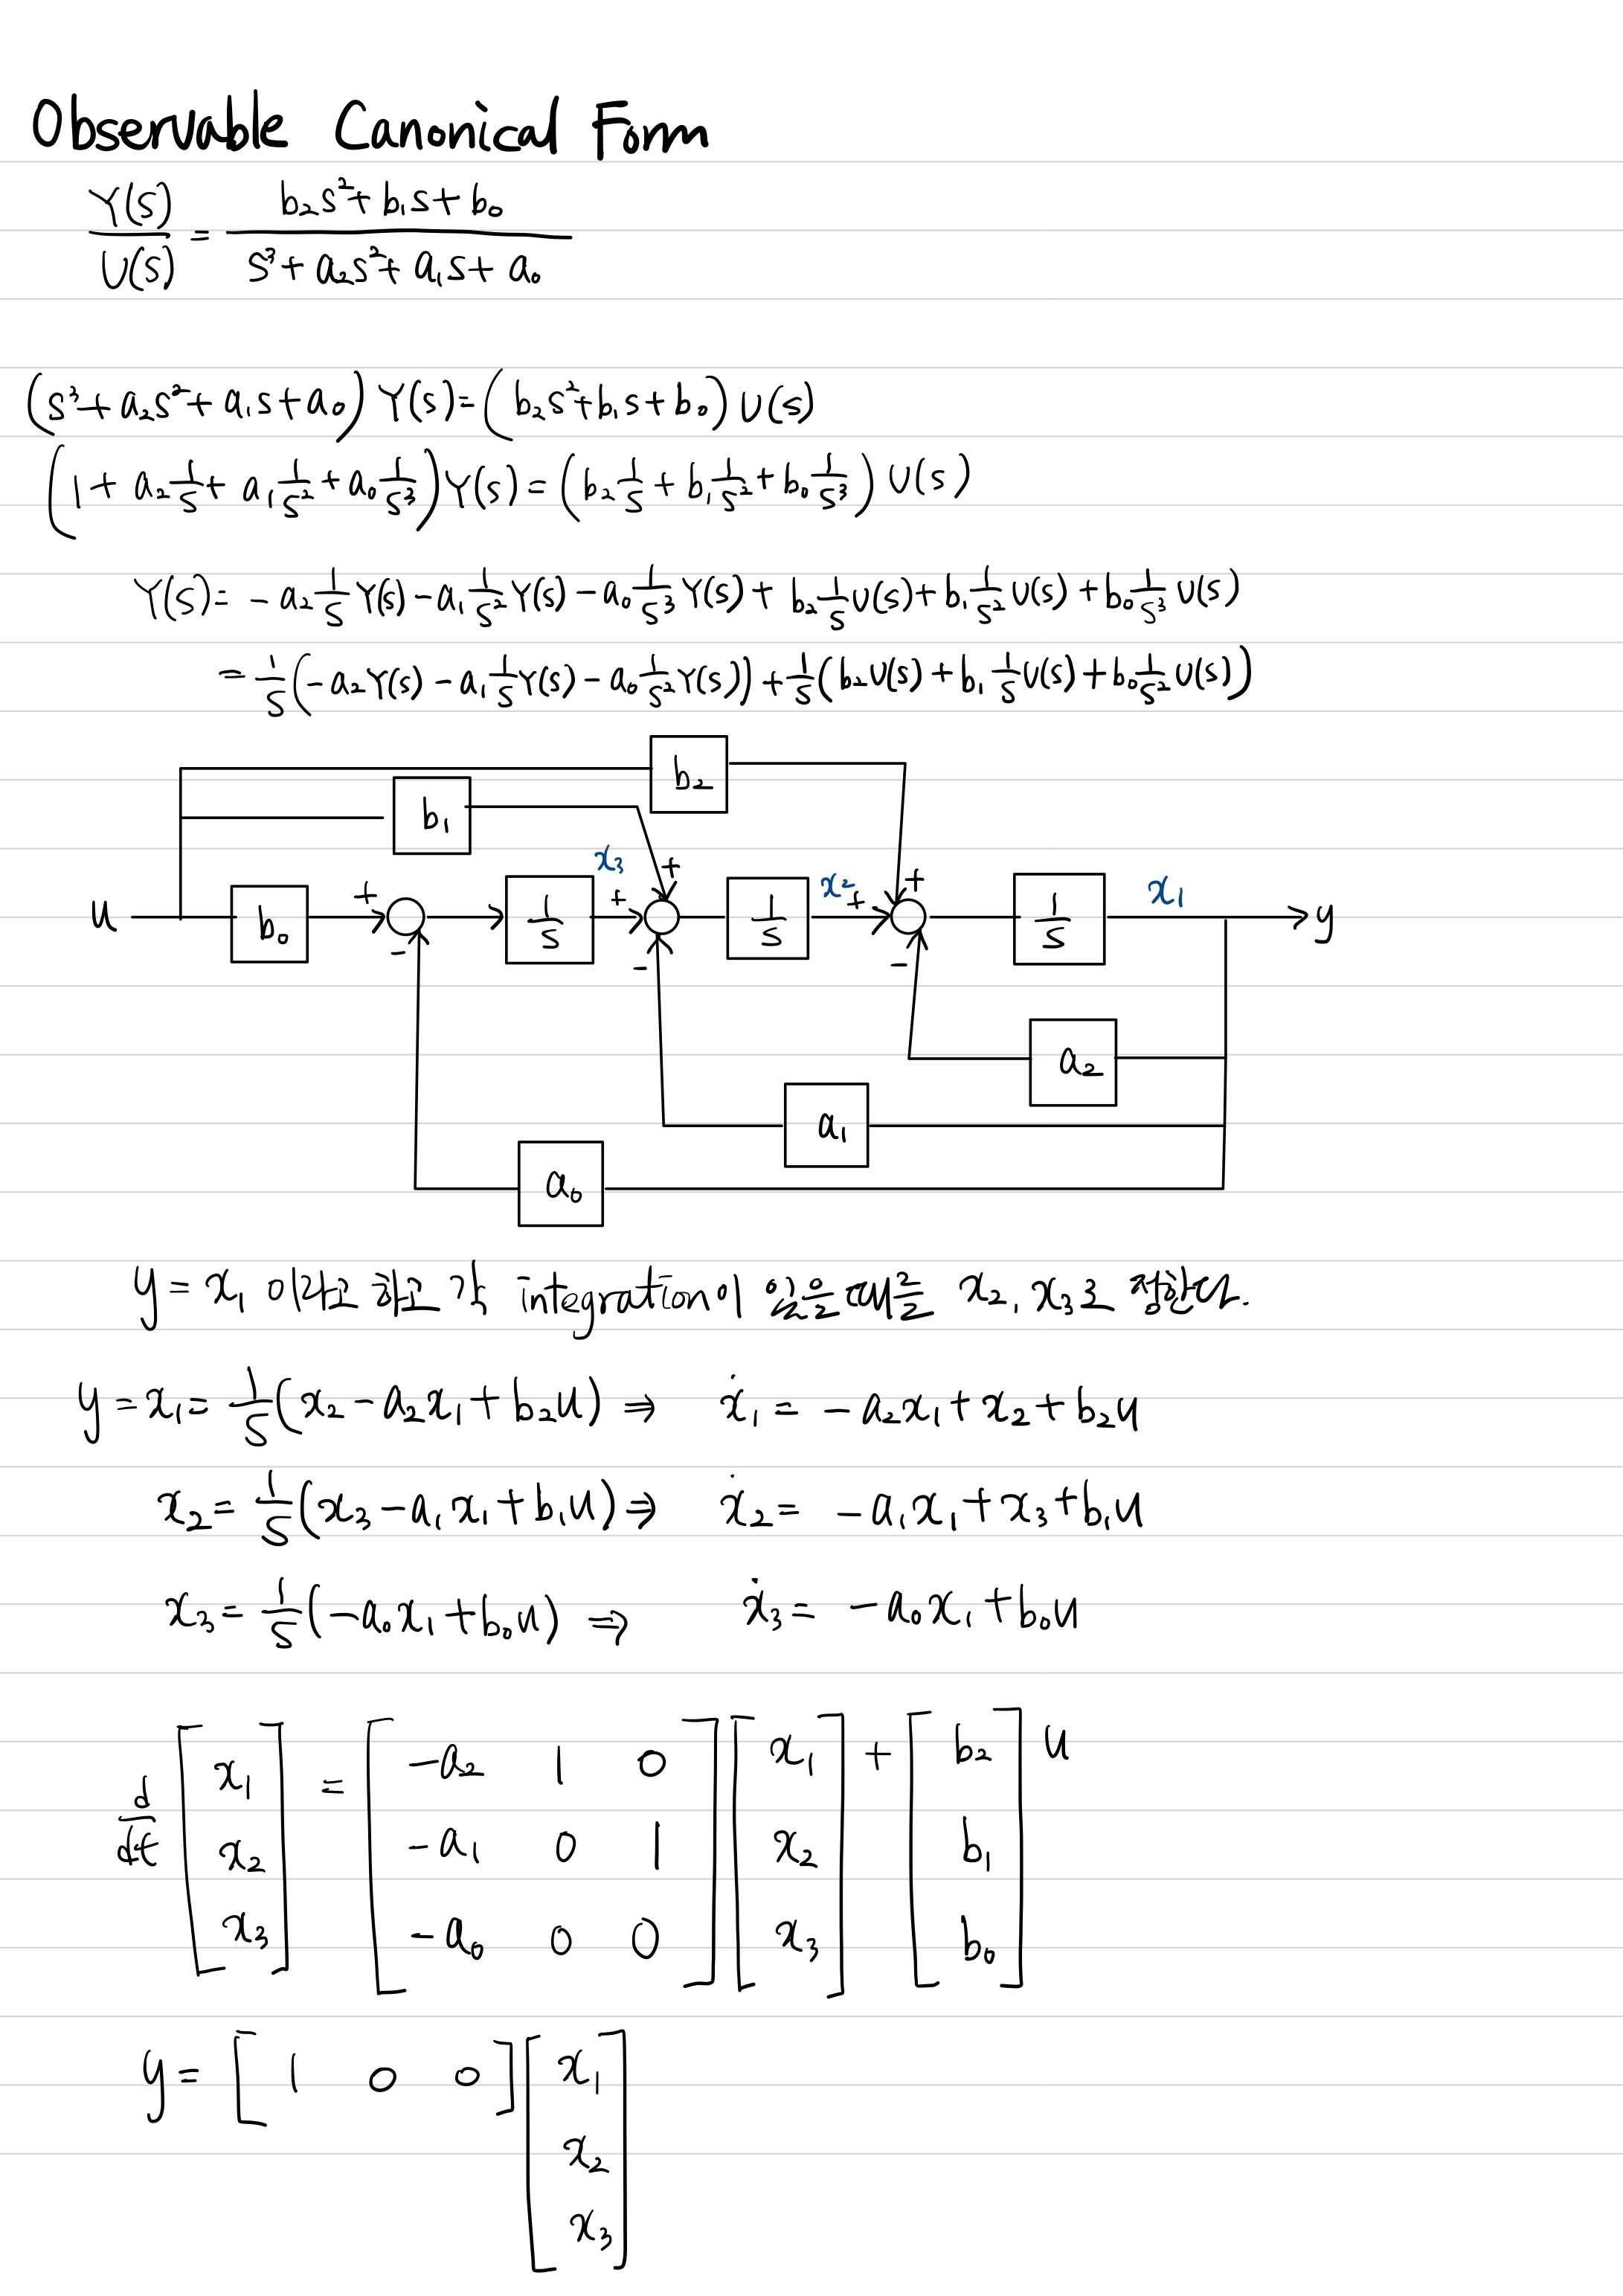 Observable Canonical Form
Y(s)/U(s) = (b₂s²+b₁s+b₀)/(s³+a₂s²+a₁s+a₀)
(s³+a₂s²+a₁s+a₀)Y(s)=(b₂s²+b₁s+b₀)U(s)
(1+a₂1/s+a₁1/s²+a₀1/s³)Y(s)=(b₂1/s+b₁1/s²+b₀1/s³)U(s)
Y(s)= -a₂1/s Y(s)-a₁1/s² Y(s)-a₀1/s³ Y(s)+b₂1/s U(s)+b₁1/s² U(s)+b₀1/s³ U(s)
=1/s(-a₂Y(s)-a₁1/s Y(s)-a₀1/s² Y(s))+1/s(b₂U(s)+b₁1/s U(s)+b₀1/s² U(s))
b₂
b₁
x₃ + x₂ + x₁
u b₀ + 1/s + 1/s + 1/s y
- - -
a₂
a₁
a₀
y=x₁ 이라고 하고 각 integration이 있을때를 x₂, x₃로 정한다.
y=x₁=1/s(x₂-a₂x₁+b₂u) ⇒ ẋ₁=-a₂x₁+x₂+b₂u
x₂=1/s(x₃-a₁x₁+b₁u) ⇒ ẋ₂=-a₁x₁+x₃+b₁u
x₃=1/s(-a₀x₁+b₀u) ⇒ ẋ₃=-a₀x₁+b₀u
d/dt [x₁ = [-a₂ 1 0] [x₁] + [b₂] u
x₂ -a₁ 0 1 x₂ b₁
x₃] -a₀ 0 0 x₃ b₀
y= [1 0 0] [x₁
x₂
x₃]